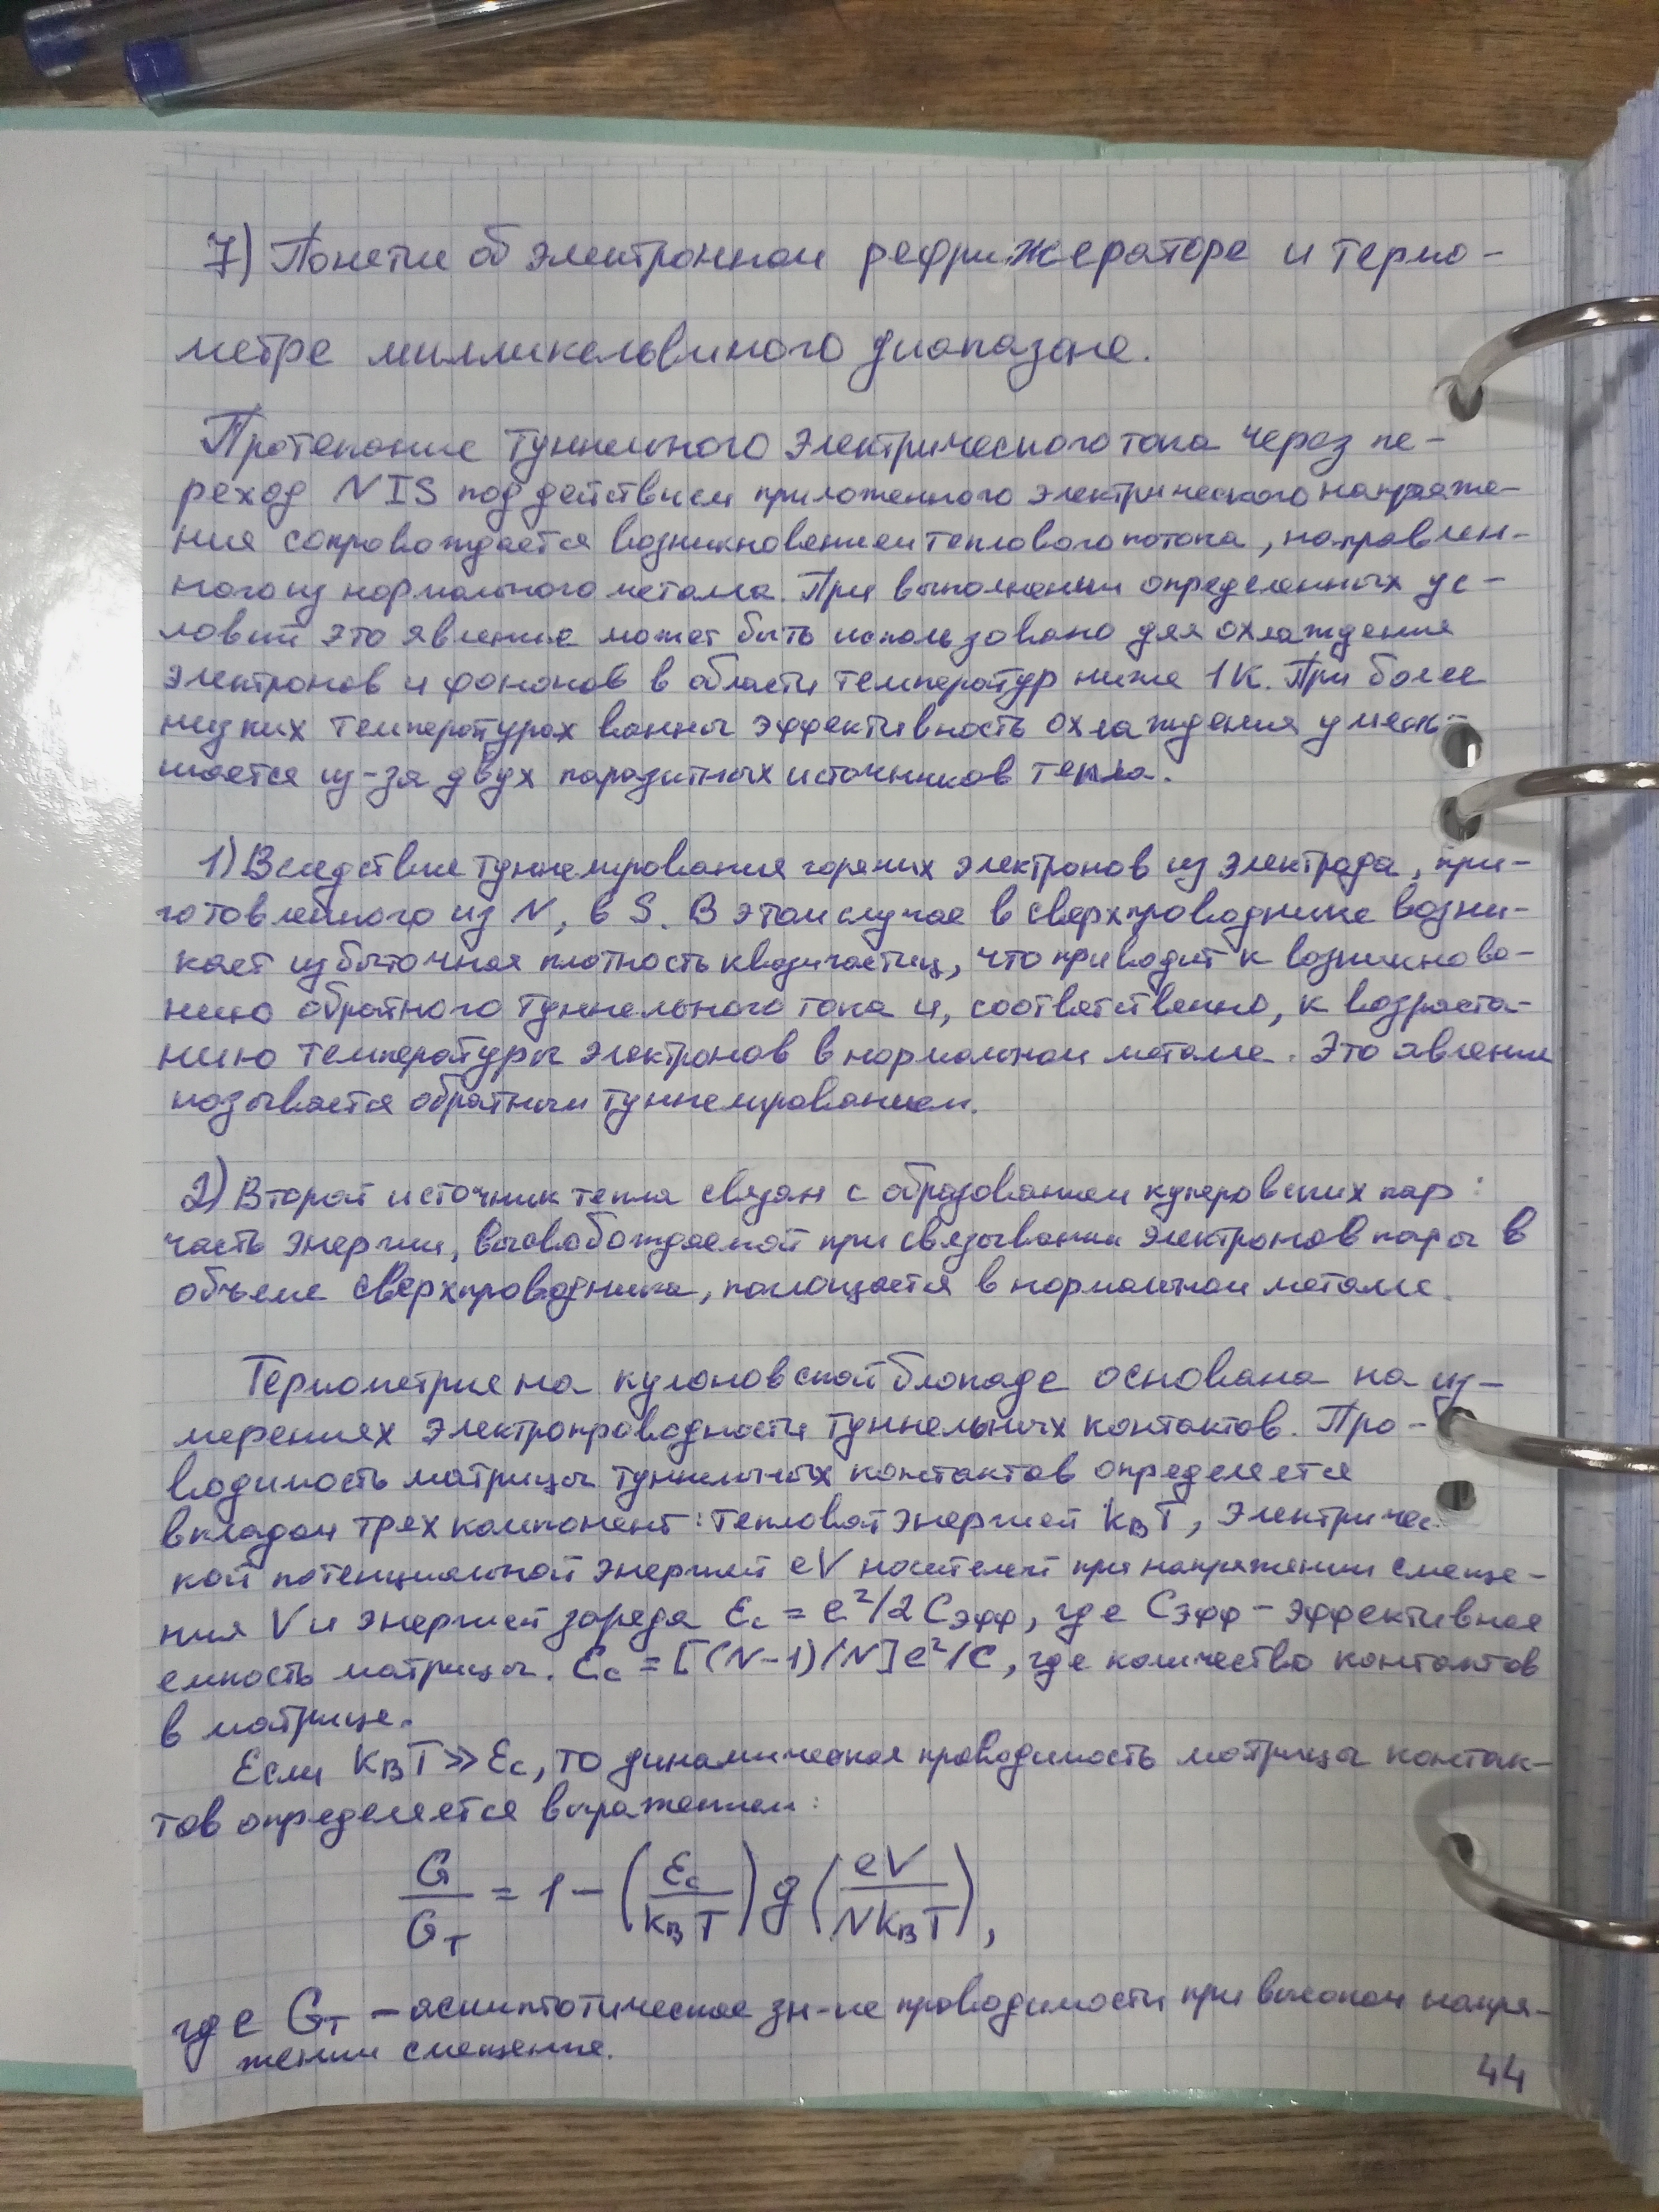 7) Понетие об электронном рефрижераторе и термо-
метре милликельвиного диапазоне.
Протекание туннельного электрического тока через пе-
реход NIS под действием приложенного электрического напряже-
ния сопровождается возникновением теплового потока, направлен-
ного из нормального металла. При выполнении определенных ус-
ловий это явление может быть использовано для охлаждения
электронов и фононов в области температур ниже 1К. При более
низких температурах ванны эффективность охлаждения умень-
шается из-за двух паразитных источников тепла.
1) Вследствие туннелирования горячих электронов из электрода, при-
готовленного из N, в S. В этом случае в сверхпроводнике возни-
кает избыточная плотность квазичастиц, что приводит к возникнова-
нию обратного туннельного тока и, соответственно, к возраста-
нию температуры электронов в нормальном металле. Это явление
называется обратным туннелированием.
2) Второй источник тепла связан с образованием куперовских пар:
часть энергии, высвобождаемой при связывании электронов пары в
объеме сверхпроводника, поглощается в нормальном металле.
Термометрие на кулоновской блокаде основана на из-
мерениях электропроводности туннельных контактов. Про-
водимость матрицы туннельных контактов определяется
вкладом трех компонент: тепловой энергией kBT, электричес-
кой потенциальной энергией eV носителей при напряжении смеще-
ния V и энергией заряда Ec = e²/2Cэфф, где Cэфф – эффективная
емкость матрицы. Ec = [(N-1)/N]e²/C, где количество контактов
в матрице.
Если kBT >> Ec, то динамическая проводимость матрицы контак-
тов определяется выражением:
G/GT = 1 - (Ec/kBT) g (eV/NkBT),
где GT – асимптотическое зн-ие проводимости при высоком напря-
жении смещение.
44